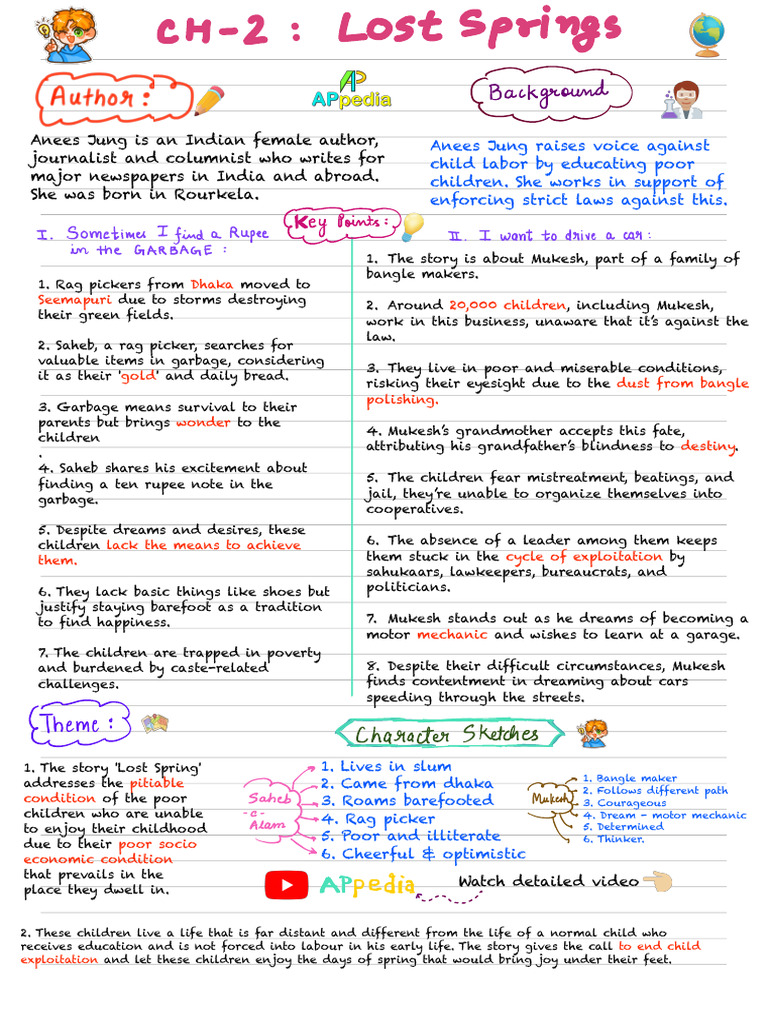 CH-2 : Lost Springs
Author:
APpedia
Background
Anees Jung is an Indian female author,
journalist and columnist who writes for
major newspapers in India and abroad.
She was born in Rourkela.
Anees Jung raises voice against
child labor by educating poor
children. She works in support of
enforcing strict laws against this.
Key Points:
I. Sometimes I find a Rupee
in the GARBAGE :
1. Rag pickers from Dhaka moved to
Seemapuri due to storms destroying
their green fields.
2. Saheb, a rag picker, searches for
valuable items in garbage, considering
it as their 'gold' and daily bread.
3. Garbage means survival to their
parents but brings wonder to the
children
.
4. Saheb shares his excitement about
finding a ten rupee note in the
garbage.
5. Despite dreams and desires, these
children lack the means to achieve
them.
6. They lack basic things like shoes but
justify staying barefoot as a tradition
to find happiness.
7. The children are trapped in poverty
and burdened by caste-related
challenges.
II. I want to drive a car:
1. The story is about Mukesh, part of a family of
bangle makers.
2. Around 20,000 children, including Mukesh,
work in this business, unaware that it's against the
law.
3. They live in poor and miserable conditions,
risking their eyesight due to the dust from bangle
polishing.
4. Mukesh's grandmother accepts this fate,
attributing his grandfather's blindness to destiny.
5. The children fear mistreatment, beatings, and
jail, they're unable to organize themselves into
cooperatives.
6. The absence of a leader among them keeps
them stuck in the cycle of exploitation by
sahukaars, lawkeepers, bureaucrats, and
politicians.
7. Mukesh stands out as he dreams of becoming a
motor mechanic and wishes to learn at a garage.
8. Despite their difficult circumstances, Mukesh
finds contentment in dreaming about cars
speeding through the streets.
Theme:
1. The story 'Lost Spring'
addresses the pitiable
condition of the poor
children who are unable
to enjoy their childhood
due to their poor socio
economic condition
that prevails in the
place they dwell in.
Character Sketches
Saheb
-e-
Alam
1. Lives in slum
2. Came from dhaka
3. Roams barefooted
4. Rag picker
5. Poor and illiterate
6. Cheerful & optimistic
Mukesh
1. Bangle maker
2. Follows different path
3. Courageous
4. Dream - motor mechanic
5. Determined
6. Thinker.
APpedia
Watch detailed video
2. These children live a life that is far distant and different from the life of a normal child who
receives education and is not forced into labour in his early life. The story gives the call to end child
exploitation and let these children enjoy the days of spring that would bring joy under their feet.